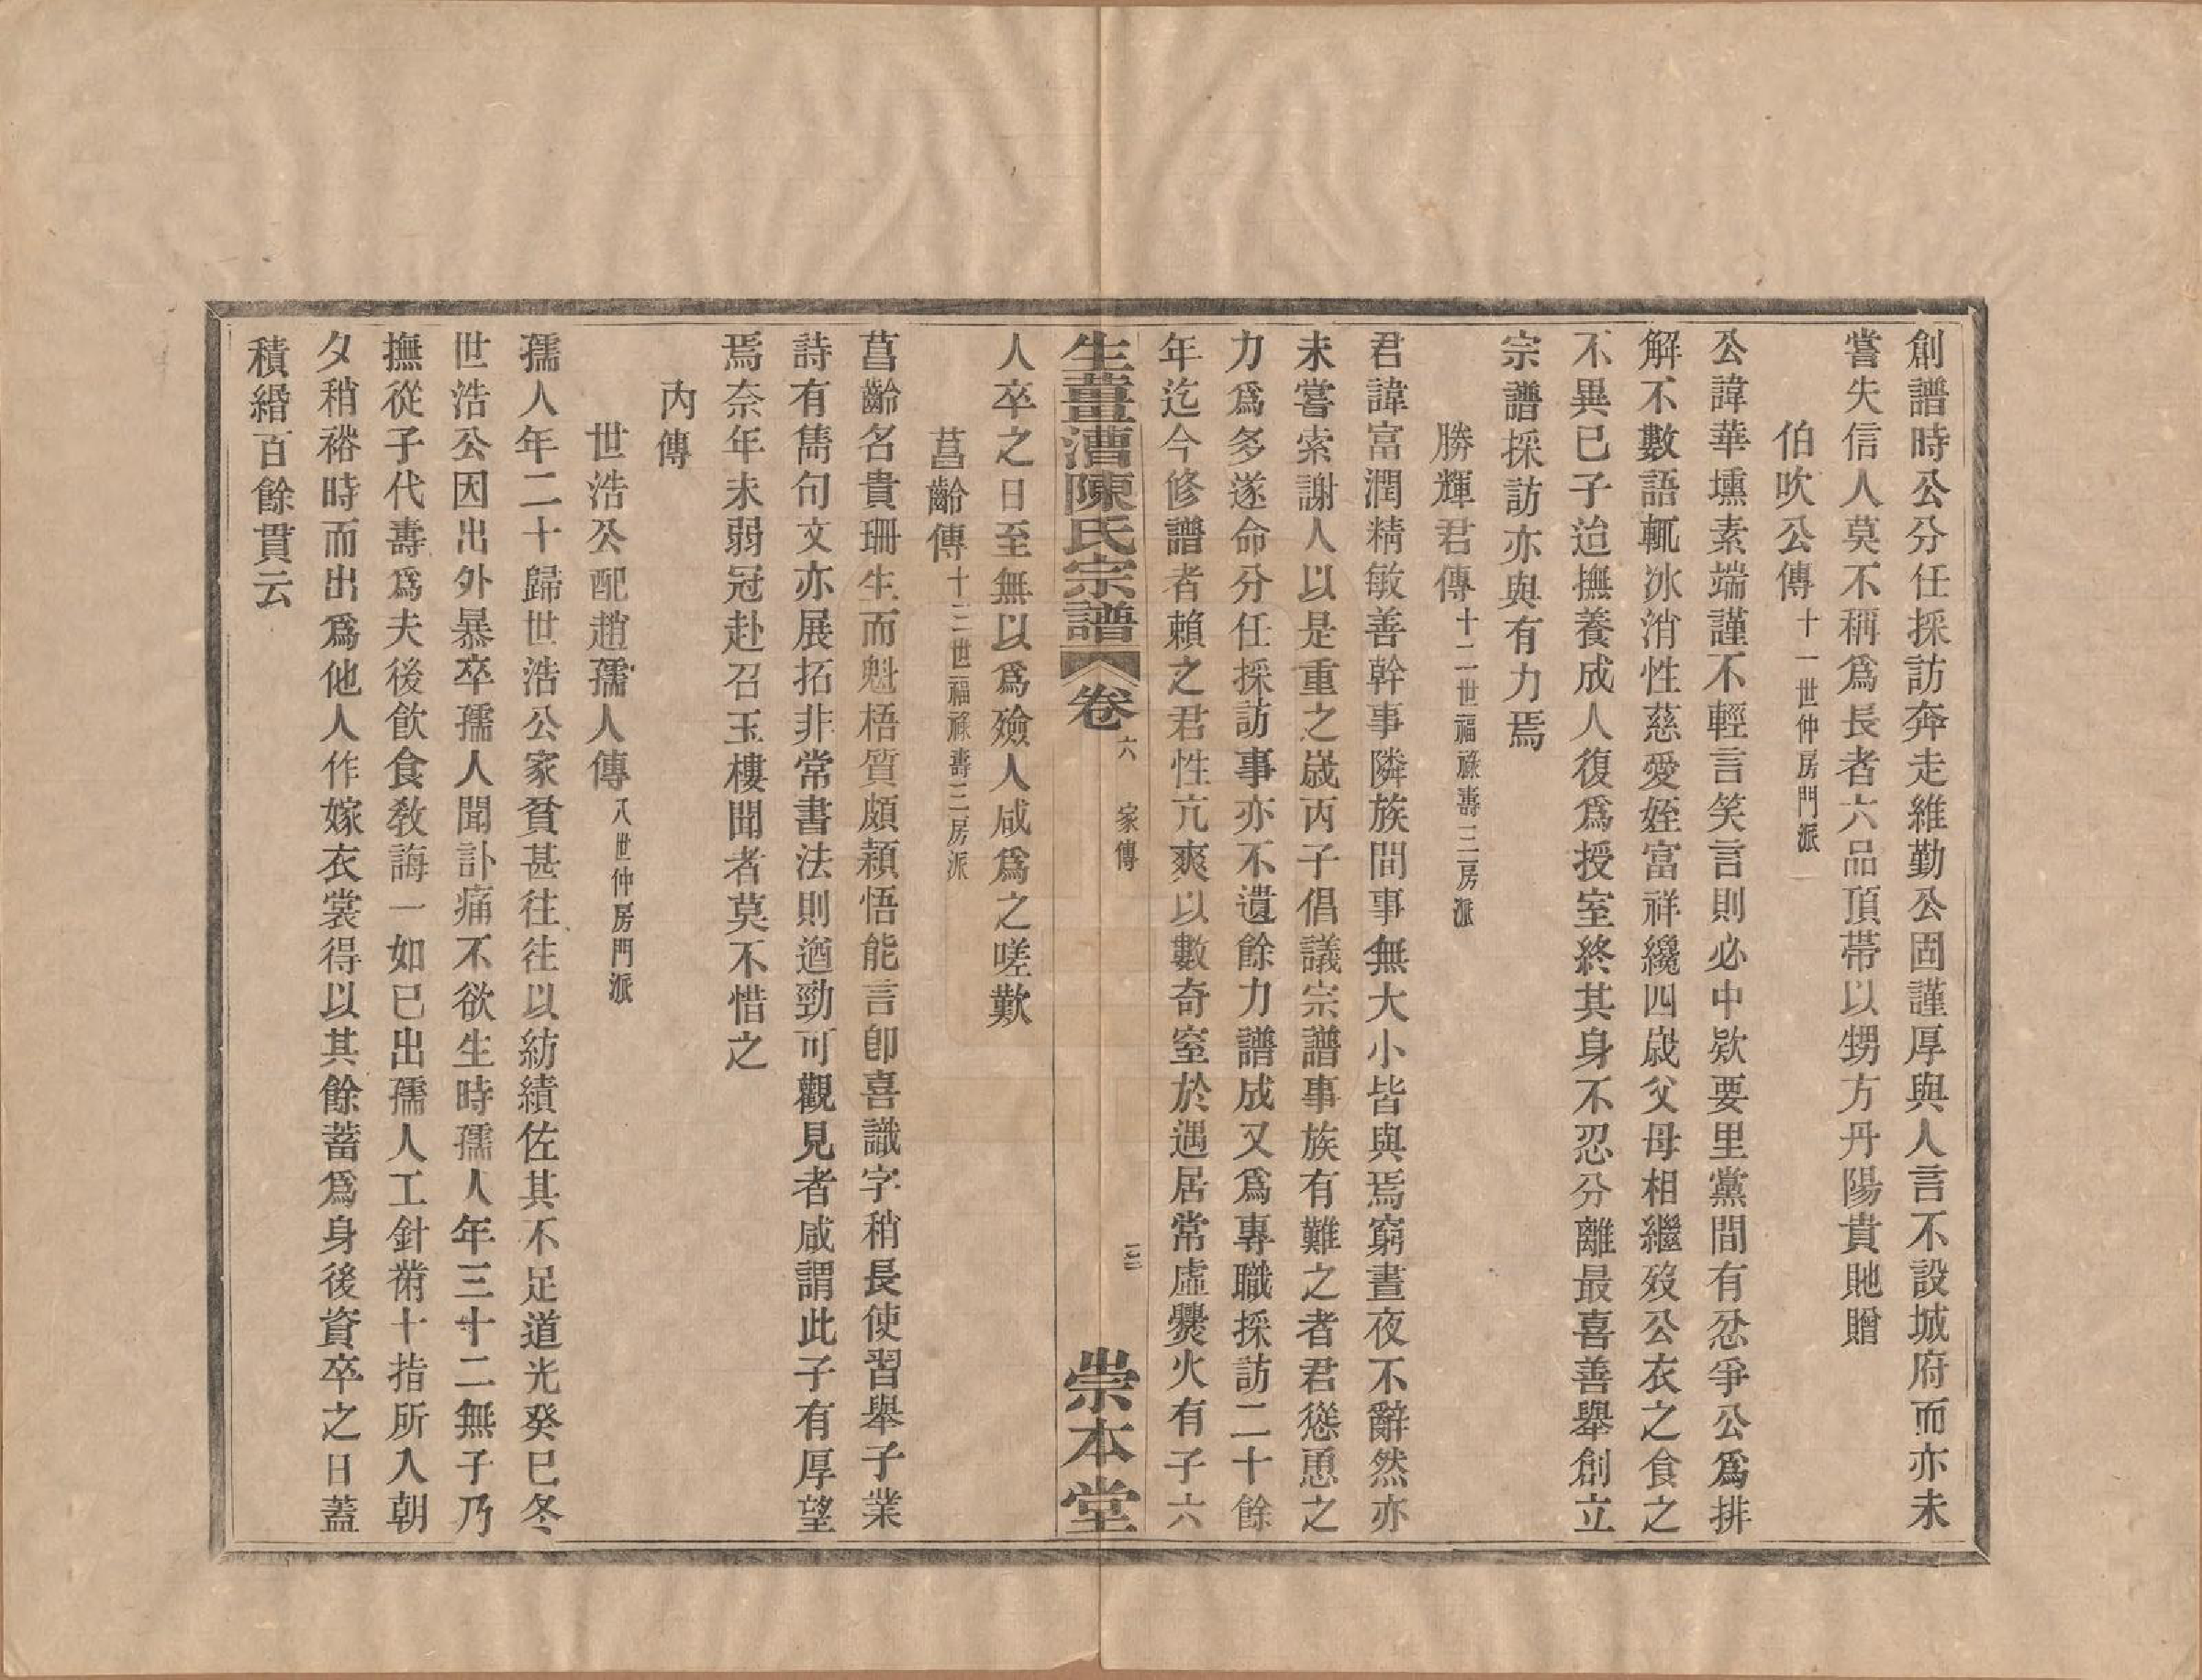 創譜時公分任採訪奔走維勤公固謹厚與人言不設城府而亦未
嘗失信人莫不稱爲長者六品頂帶以甥方丹陽貴貤贈
伯吹公傳十一世仲房門派
公諱華壎素端謹不輕言笑言則必中欵要里黨間有忿爭公爲排
解不數語輒冰消性慈愛姪富祥纔四歲父母相繼歿公衣之食之
不異已子迨撫養成人復爲授室終其身不忍分離最喜善舉創立
宗譜採訪亦與有力焉
勝輝君傳十二世福祿壽三房派
君諱富潤精敏善幹事隣族間事無大小皆與焉窮晝夜不辭然亦
未嘗索謝人以是重之歲丙子倡議宗譜事族有難之者君慫恿之
力爲多遂命分任採訪事亦不遺餘力譜成又爲專職採訪二十餘
年迄今修譜者賴之君性亢爽以數奇窒於遇居常虛爨火有子六
生薑漕陳氏宗譜 卷六 家傳 三三 崇本堂
人卒之日至無以爲殮人咸爲之嗟歎
菖齡傳十三世福祿壽三房派
菖齡名貴珊生而魁梧質頗穎悟能言卽喜識字稍長使習舉子業
詩有雋句文亦展拓非常書法則遒勁可觀見者咸謂此子有厚望
焉奈年未弱冠赴召玉樓聞者莫不惜之
內傳
世浩公配趙孺人傳八世仲房門派
孺人年二十歸世浩公家貧甚往往以紡績佐其不足道光癸巳冬
世浩公因出外暴卒孺人聞訃痛不欲生時孺人年三十二無子乃
撫從子代壽爲夫後飲食敎誨一如已出孺人工針黹十指所入朝
夕稍裕時而出爲他人作嫁衣裳得以其餘蓄爲身後資卒之日蓋
積緡百餘貫云